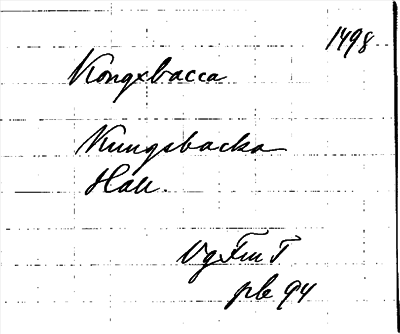 1498
Kongxbacca
Kungsbacka
Hall.
VgFmT
plb 94